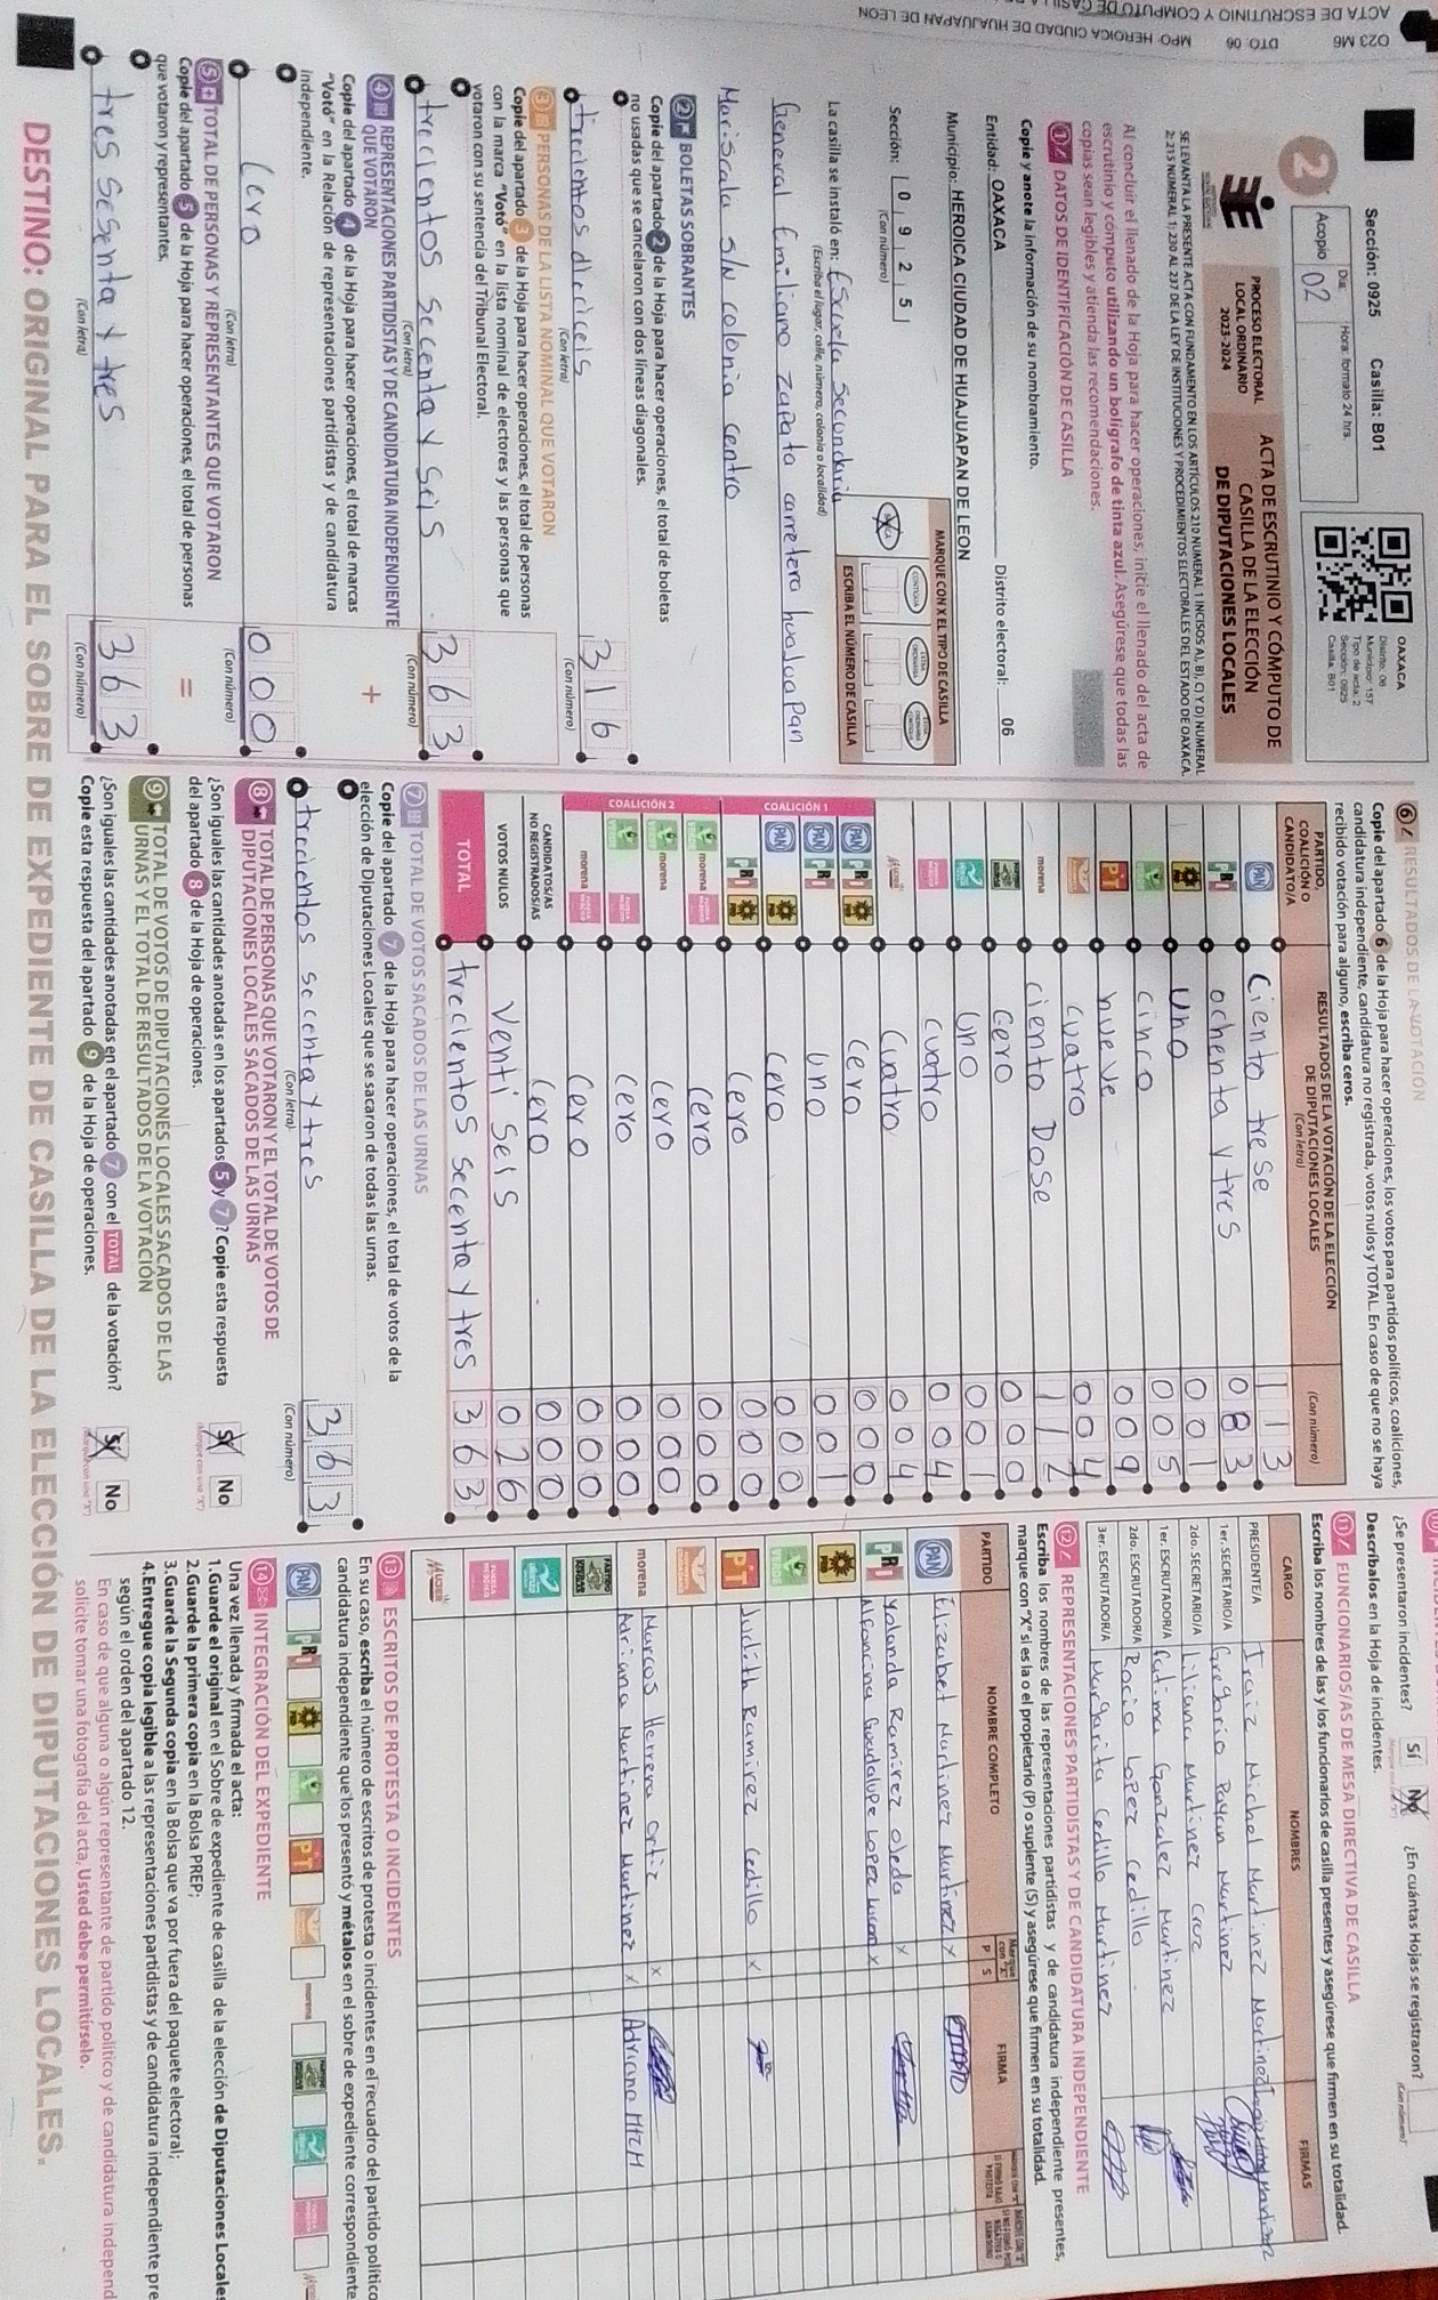 Sección: 0925 Casilla: B01
Día: Hora: formato 24 hrs.
Acopio 02
OAXACA
Distrito: 06
Municipio: 157
Tipo de acta: 2
Sección: 0925
Casilla: B01
2
PROCESO ELECTORAL
LOCAL ORDINARIO
2023-2024
ACTA DE ESCRUTINIO Y CÓMPUTO DE
CASILLA DE LA ELECCIÓN
DE DIPUTACIONES LOCALES
SE LEVANTA LA PRESENTE ACTA CON FUNDAMENTO EN LOS ARTÍCULOS 210 NUMERAL 1 INCISOS A), B), C) Y D) NUMERAL
2; 215 NUMERAL 1; 230 AL 237 DE LA LEY DE INSTITUCIONES Y PROCEDIMIENTOS ELECTORALES DEL ESTADO DE OAXACA.
Al concluir el llenado de la Hoja para hacer operaciones, inicie el llenado del acta de
escrutinio y cómputo utilizando un bolígrafo de tinta azul. Asegúrese que todas las
copias sean legibles y atienda las recomendaciones.
1 DATOS DE IDENTIFICACIÓN DE CASILLA
Copie y anote la información de su nombramiento.
Entidad: OAXACA Distrito electoral: 06
Municipio: HEROICA CIUDAD DE HUAJUAPAN DE LEON
Sección: 0 9 2 5
(Con número)
MARQUE CON X EL TIPO DE CASILLA
ESCRIBA EL NÚMERO DE CASILLA
La casilla se instaló en: Escuela Secundaria
(Escriba el lugar, calle, número, colonia o localidad)
General Emiliano Zapata carretera huajuapan
Mariscala S/N colonia Centro
2 BOLETAS SOBRANTES
Copie del apartado 2 de la Hoja para hacer operaciones, el total de boletas
no usadas que se cancelaron con dos líneas diagonales.
trecientos dieciceis 3 1 6
(Con letra) (Con número)
3 PERSONAS DE LA LISTA NOMINAL QUE VOTARON
Copie del apartado 3 de la Hoja para hacer operaciones, el total de personas
con la marca "Votó" en la lista nominal de electores y las personas que
votaron con su sentencia del Tribunal Electoral.
trecientos secenta y seis 3 6 3
(Con letra) (Con número)
4 REPRESENTACIONES PARTIDISTAS Y DE CANDIDATURA INDEPENDIENTE
QUE VOTARON +
Copie del apartado 4 de la Hoja para hacer operaciones, el total de marcas
"Votó" en la Relación de representaciones partidistas y de candidatura
independiente.
Cero 0 0 0
(Con letra) (Con número)
5 TOTAL DE PERSONAS Y REPRESENTANTES QUE VOTARON
Copie del apartado 5 de la Hoja para hacer operaciones, el total de personas =
que votaron y representantes.
tres sesenta y tres 3 6 3
(Con letra) (Con número)
6 RESULTADOS DE LA VOTACIÓN
Copie del apartado 6 de la Hoja para hacer operaciones, los votos para partidos políticos, coaliciones,
candidatura independiente, candidatura no registrada, votos nulos y TOTAL. En caso de que no se haya
recibido votación para alguno, escriba ceros.
PARTIDO, COALICIÓN O CANDIDATO/A
RESULTADOS DE LA VOTACIÓN DE LA ELECCIÓN
DE DIPUTACIONES LOCALES
(Con letra) (Con número)
PAN Ciento trese 1 1 3
PRI ochenta y tres 0 8 3
PRD Uno 0 0 1
VERDE cinco 0 0 5
PT nueve 0 0 9
cuatro 0 0 4
morena ciento Dose 1 1 2
Cero 0 0 0
Uno 0 0 1
cuatro 0 0 4
MUJER Cuatro 0 0 4
COALICIÓN 1
PAN PRI PRD Cero 0 0 0
PAN PRI uno 0 0 1
PAN PRD Cero 0 0 0
PRI PRD Cero 0 0 0
COALICIÓN 2
VERDE morena Cero 0 0 0
VERDE morena Cero 0 0 0
VERDE Cero 0 0 0
morena Cero 0 0 0
CANDIDATOS/AS NO REGISTRADOS/AS Cero 0 0 0
VOTOS NULOS Venti Seis 0 2 6
TOTAL trecientos secenta y tres 3 6 3
7 TOTAL DE VOTOS SACADOS DE LAS URNAS
Copie del apartado 7 de la Hoja para hacer operaciones, el total de votos de la
elección de Diputaciones Locales que se sacaron de todas las urnas.
trecientos secenta y tres 3 6 3
(Con letra) (Con número)
8 TOTAL DE PERSONAS QUE VOTARON Y EL TOTAL DE VOTOS DE
DIPUTACIONES LOCALES SACADOS DE LAS URNAS
¿Son iguales las cantidades anotadas en los apartados 5 y 7? Copie esta respuesta
del apartado 8 de la Hoja de operaciones. Sí No
9 TOTAL DE VOTOS DE DIPUTACIONES LOCALES SACADOS DE LAS
URNAS Y EL TOTAL DE RESULTADOS DE LA VOTACIÓN
¿Son iguales las cantidades anotadas en el apartado 7 con el TOTAL de la votación?
Copie esta respuesta del apartado 9 de la Hoja de operaciones. Sí No
¿Se presentaron incidentes? Sí No ¿En cuántas Hojas se registraron?
(Con número)
Descríbalos en la Hoja de incidentes.
11 FUNCIONARIOS/AS DE MESA DIRECTIVA DE CASILLA
Escriba los nombres de las y los funcionarios de casilla presentes y asegúrese que firmen en su totalidad.
CARGO NOMBRES FIRMAS
PRESIDENTE/A Iraiz Michel Martinez Martinez
1er. SECRETARIO/A Gregorio Payan Martinez
2do. SECRETARIO/A Liliana Martinez Cruz
1er. ESCRUTADOR/A Fatima Gonzalez Martinez
2do. ESCRUTADOR/A Rocio Lopez Cedillo
3er. ESCRUTADOR/A Margarita Cedillo Martinez
12 REPRESENTACIONES PARTIDISTAS Y DE CANDIDATURA INDEPENDIENTE
Escriba los nombres de las representaciones partidistas y de candidatura independiente presentes,
marque con "X" si es la o el propietario (P) o suplente (S) y asegúrese que firmen en su totalidad.
PARTIDO NOMBRE COMPLETO Marque con "X" P S FIRMA
PAN Elizabet Martinez Martinez X
PRI Yolanda Ramirez Ojeda X
Alfoncina Guadalupe Lopez X
PRD
VERDE
PT Judith Ramirez Cedillo X
morena Marcos Herrera Ortiz X
Adriana Martinez Martinez X Adriana Mtz M
MUJER
13 ESCRITOS DE PROTESTA O INCIDENTES
En su caso, escriba el número de escritos de protesta o incidentes en el recuadro del partido político
candidatura independiente que los presentó y métalos en el sobre de expediente correspondiente
PAN PRI PRD VERDE PT morena
14 INTEGRACIÓN DEL EXPEDIENTE
Una vez llenada y firmada el acta:
1.Guarde el original en el Sobre de expediente de casilla de la elección de Diputaciones Locales
2.Guarde la primera copia en la Bolsa PREP;
3.Guarde la Segunda copia en la Bolsa que va por fuera del paquete electoral;
4.Entregue copia legible a las representaciones partidistas y de candidatura independiente pre
según el orden del apartado 12.
En caso de que alguna o algún representante de partido político y de candidatura independ
solicite tomar una fotografía del acta, Usted debe permitírselo.
DESTINO: ORIGINAL PARA EL SOBRE DE EXPEDIENTE DE CASILLA DE LA ELECCIÓN DE DIPUTACIONES LOCALES.
O23 M6 DTO: 06 MPO: HEROICA CIUDAD DE HUAJUAPAN DE LEON
ACTA DE ESCRUTINIO Y COMPUTO DE CASILLA